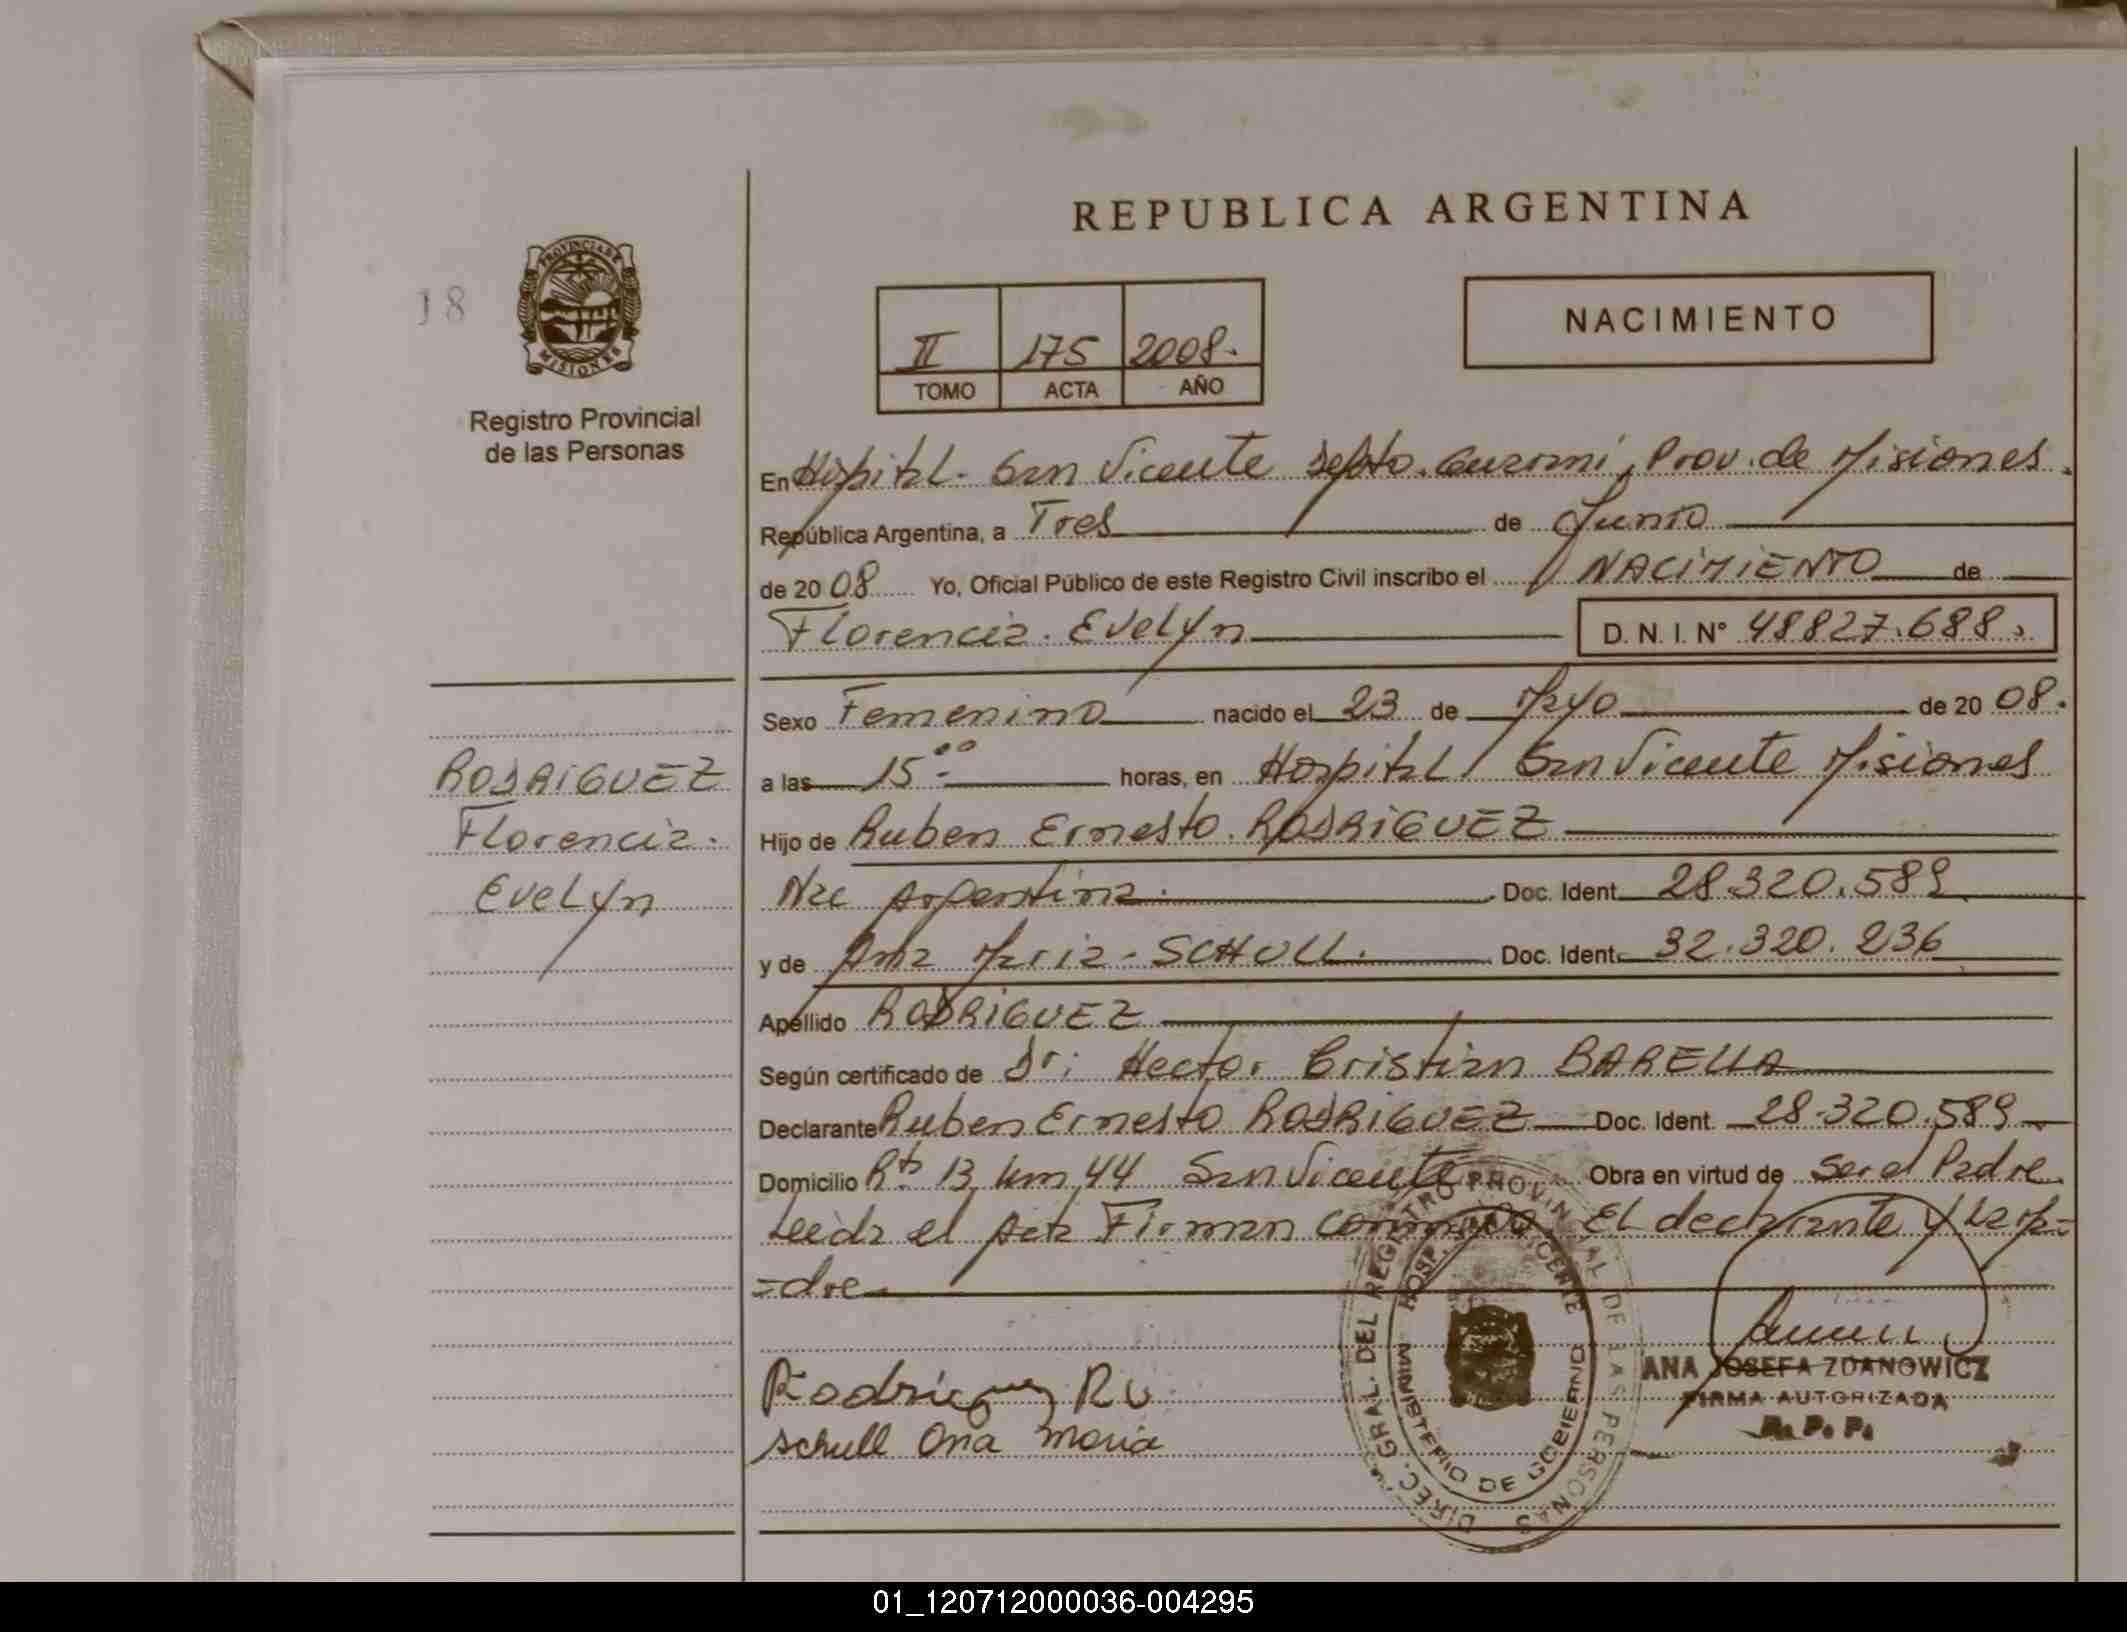 REPUBLICA ARGENTINA
18
PROVINCIA DE
MISIONES
Registro Provincial
de las Personas
II 175 2008.
TOMO ACTA AÑO
NACIMIENTO
En Hospital. San Vicente Depto. Guarani, Prov. de Misiones.
República Argentina, a Tres de Junio
de 20 08 Yo, Oficial Público de este Registro Civil inscribo el NACIMIENTO de
Florencia. Evelyn D. N. I. Nº 48827.688.
Sexo Femenino nacido el 23 de Mayo de 20 08.
a las 15.00 horas, en Hospital San Vicente Misiones
Hijo de Ruben Ernesto. RODRIGUEZ
Nac Argentina. Doc. Ident. 28.320.589
y de Ana Maria - SCHULL. Doc. Ident. 32.320.236
Apellido RODRIGUEZ
Según certificado de Dr: Hector Cristian BARELLA
Declarante Ruben Ernesto RODRIGUEZ Doc. Ident. 28.320.589
Domicilio Rta 13 km 44 San Vicente Obra en virtud de Ser el Padre
Leida el Acta Firman conmigo El declarante y la Ma-
=dre
RODRIGUEZ
Florencia.
Evelyn
Rodriguez Ru
Schull Ana Maria
DIREC. GRAL. DEL REGISTRO PROVINCIAL DE LAS PERSONAS
HOSP. VICENTE
MINISTERIO DE GOBIERNO
ANA JOSEFA ZDANOWICZ
FIRMA AUTORIZADA
R. P. P.
01_120712000036-004295